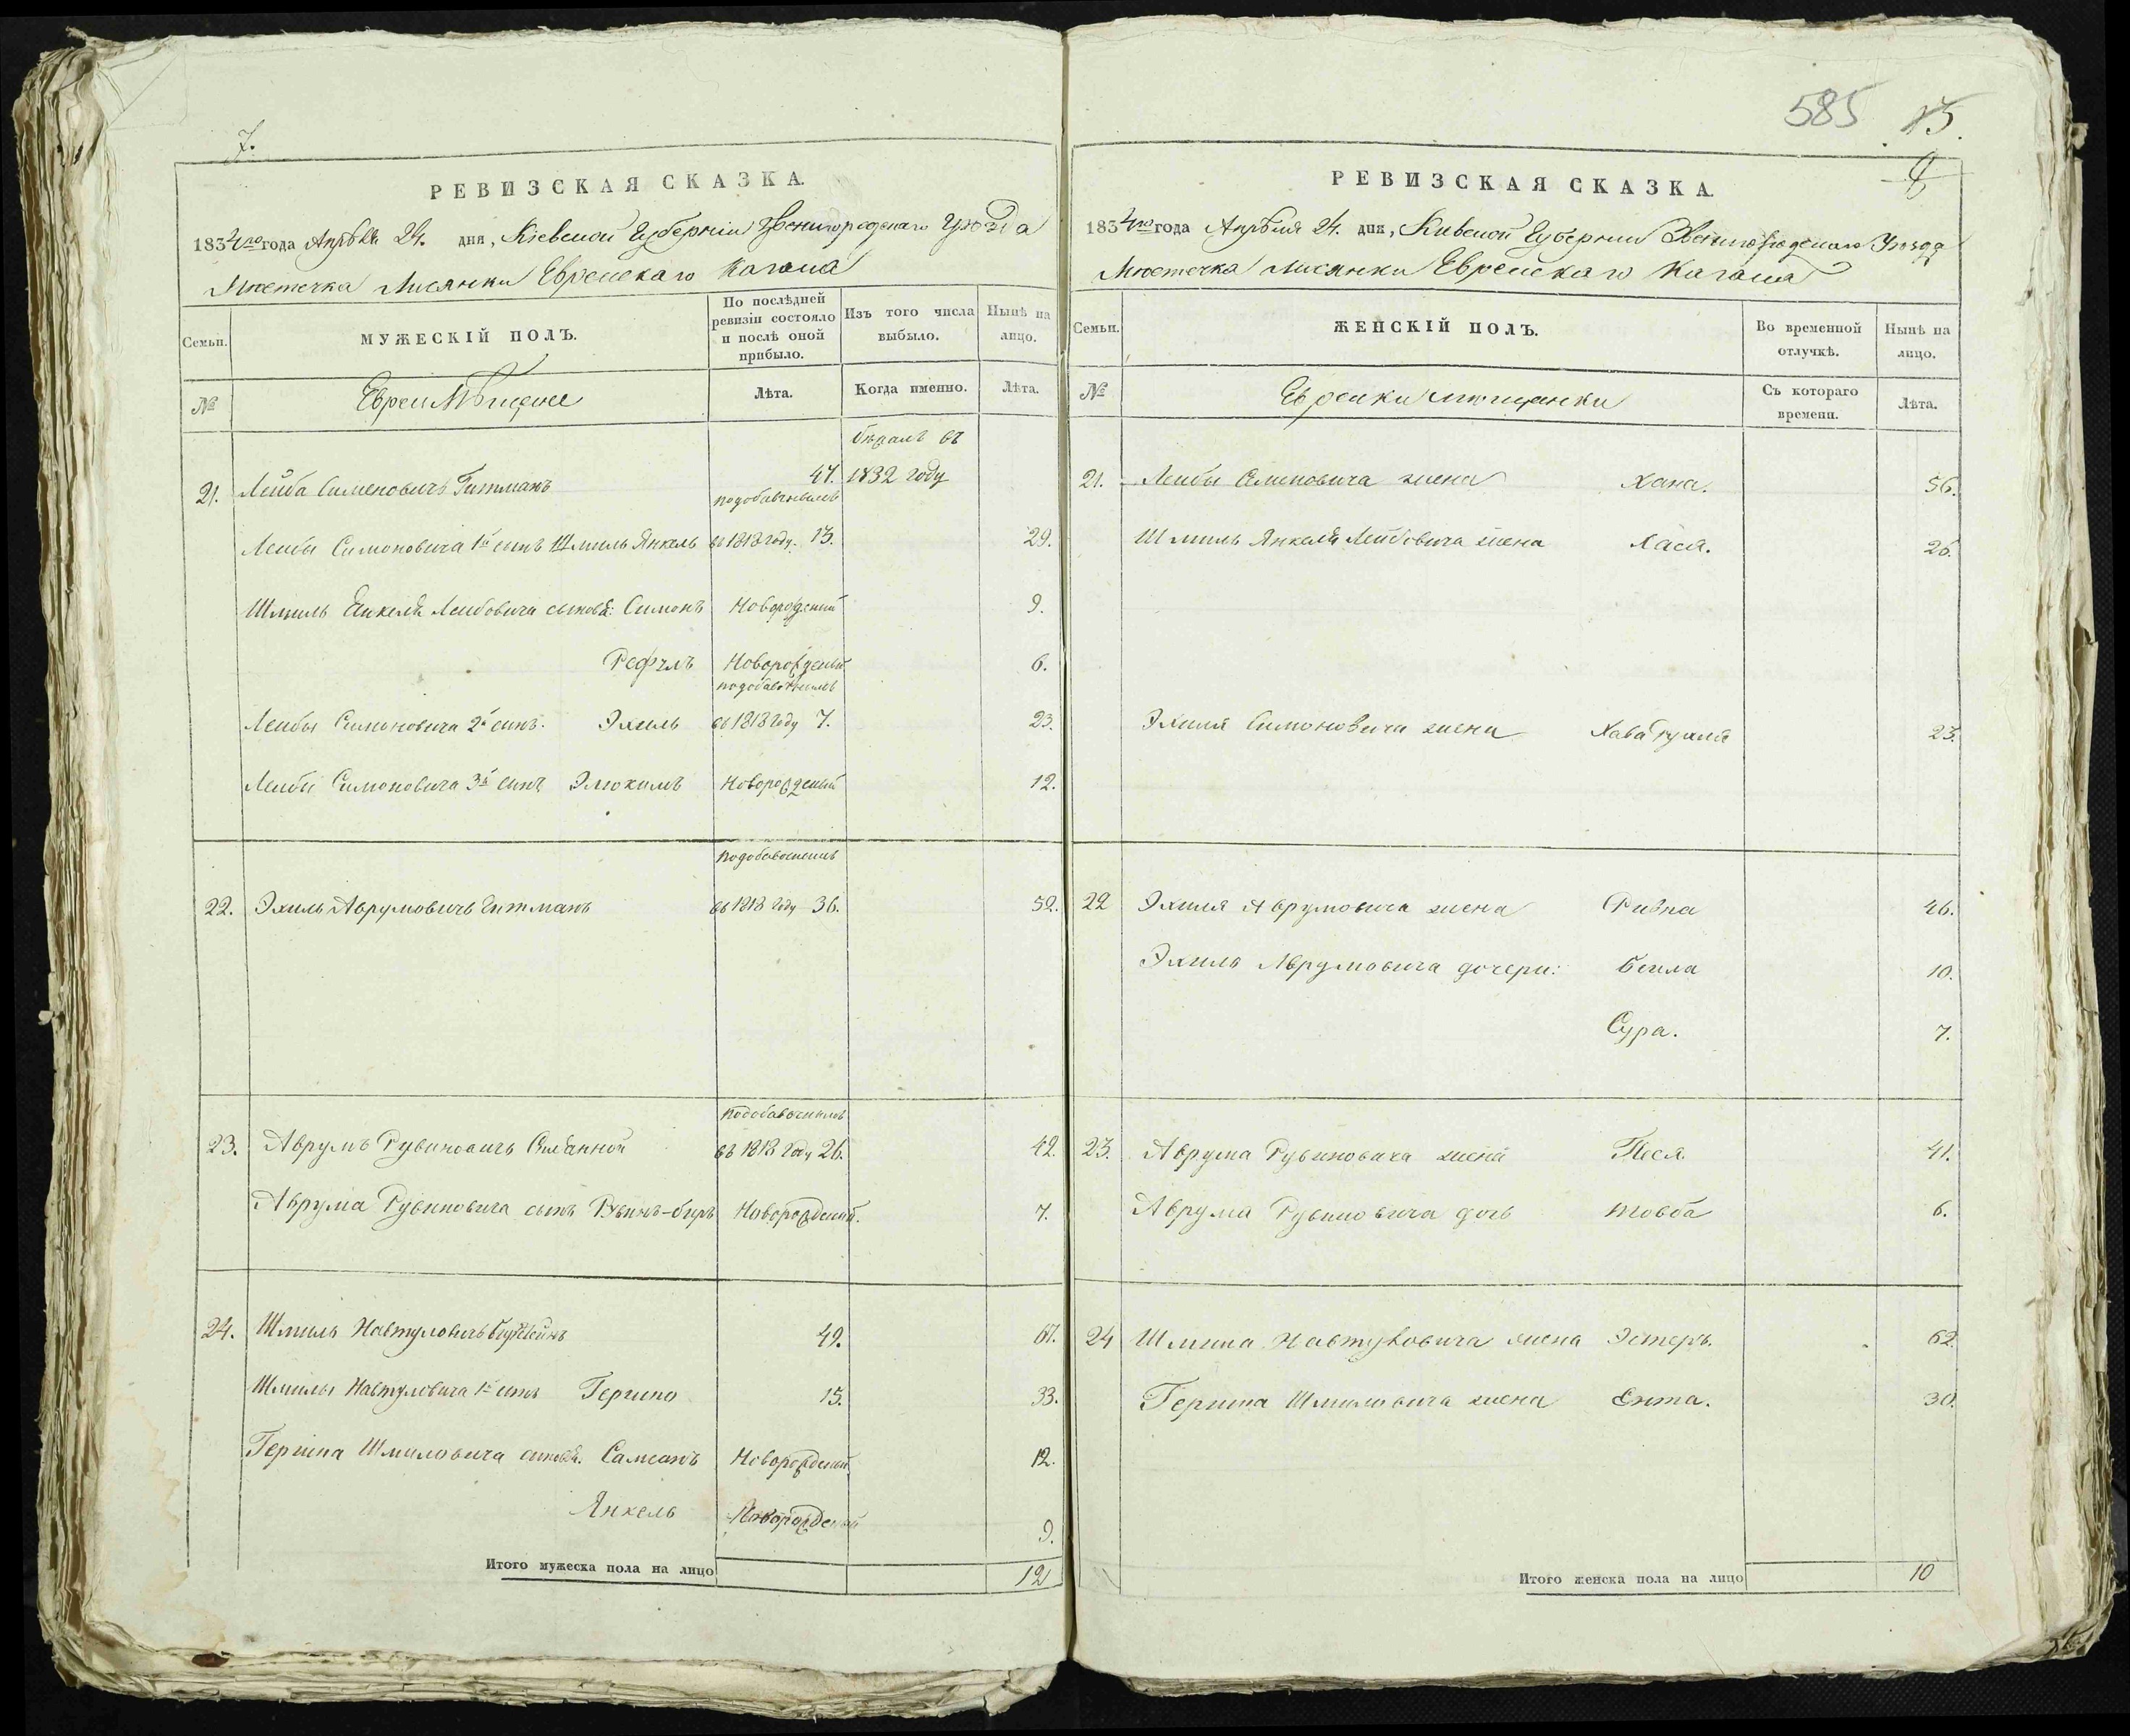 7.
РЕВИЗСКАЯ СКАЗКА.
1834го года Апрѣля 24. дня, Кіевской Губерніи Звенигородскаго Уѣзда
Мѣстечка Лисянки Еврейскаго Кагала
Семьи.
МУЖЕСКІЙ ПОЛЪ.
По послѣдней ревизіи состояло и послѣ оной прибыло.
Изъ того числа выбыло.
Нынѣ на лицо.
№
Евреи Мѣщане
Лѣта.
Когда именно.
Лѣта.
бѣжалъ въ
21. Лейба Симоновичъ Гитманъ 47. 1832 году
подобавочнымъ
Лейбы Симоновича 1й сынъ Шмиль Янкель въ 1818 году. 13. 29.
Шмиль Янкеля Лейбовича сыновья: Симонъ Новорожденный 9.
Рефулъ Новорожденный 6.
подобавочнымъ
Лейбы Симоновича 2й сынъ. Эхиль въ 1818 году 7. 23.
Лейбы Симоновича 3й сынъ Элюхимъ Новорожденный 12.
подобавочнымъ
22. Эхиль Аврумовичъ Гитманъ въ 1818 году 36. 52.
подобавочнымъ
23. Аврумъ Рувиновичъ въ 1818 году 26. 42.
Аврума Рувиновича сынъ Новорожденный. 7.
24. Шмиль Навтуловичъ 49. 67.
Шмиля Навтуловича 1й сынъ Гершко 15. 33.
Гершка Шмиловича сыновья. Самсонъ Новорожденный 12.
Янкель Новорожденный 9.
Итого мужеска пола на лицо 12
585 15.
8
РЕВИЗСКАЯ СКАЗКА.
1834го года Апрѣля 24. дня, Киевской Губернии Звенигородскаго Уѣзда
Мѣстечка Лисянки Еврейскаго Кагала
Семьи.
ЖЕНСКІЙ ПОЛЪ.
Во временной отлучкѣ.
Нынѣ на лицо.
№
Еврейки мѣщанки
Съ котораго времени.
Лѣта.
21. Лейбы Симоновича жена Хана. 56.
Шмиль Янкеля Лейбовича жена Хася. 26.
Эхиля Симоновича жена Хава Рухля 23.
22 Эхиля Аврумовича жена Ривка 46.
Эхиля Аврумовича дочери: Бейла 10.
Сура. 7.
23. Аврума Рувиновича жена Песя 41.
Аврума Рувиновича дочь Товба 6.
24 Шмиля Навтуловича жена Эстеръ. 62.
Гершка Шмиловича жена Ента. 30.
Итого женска пола на лицо 10